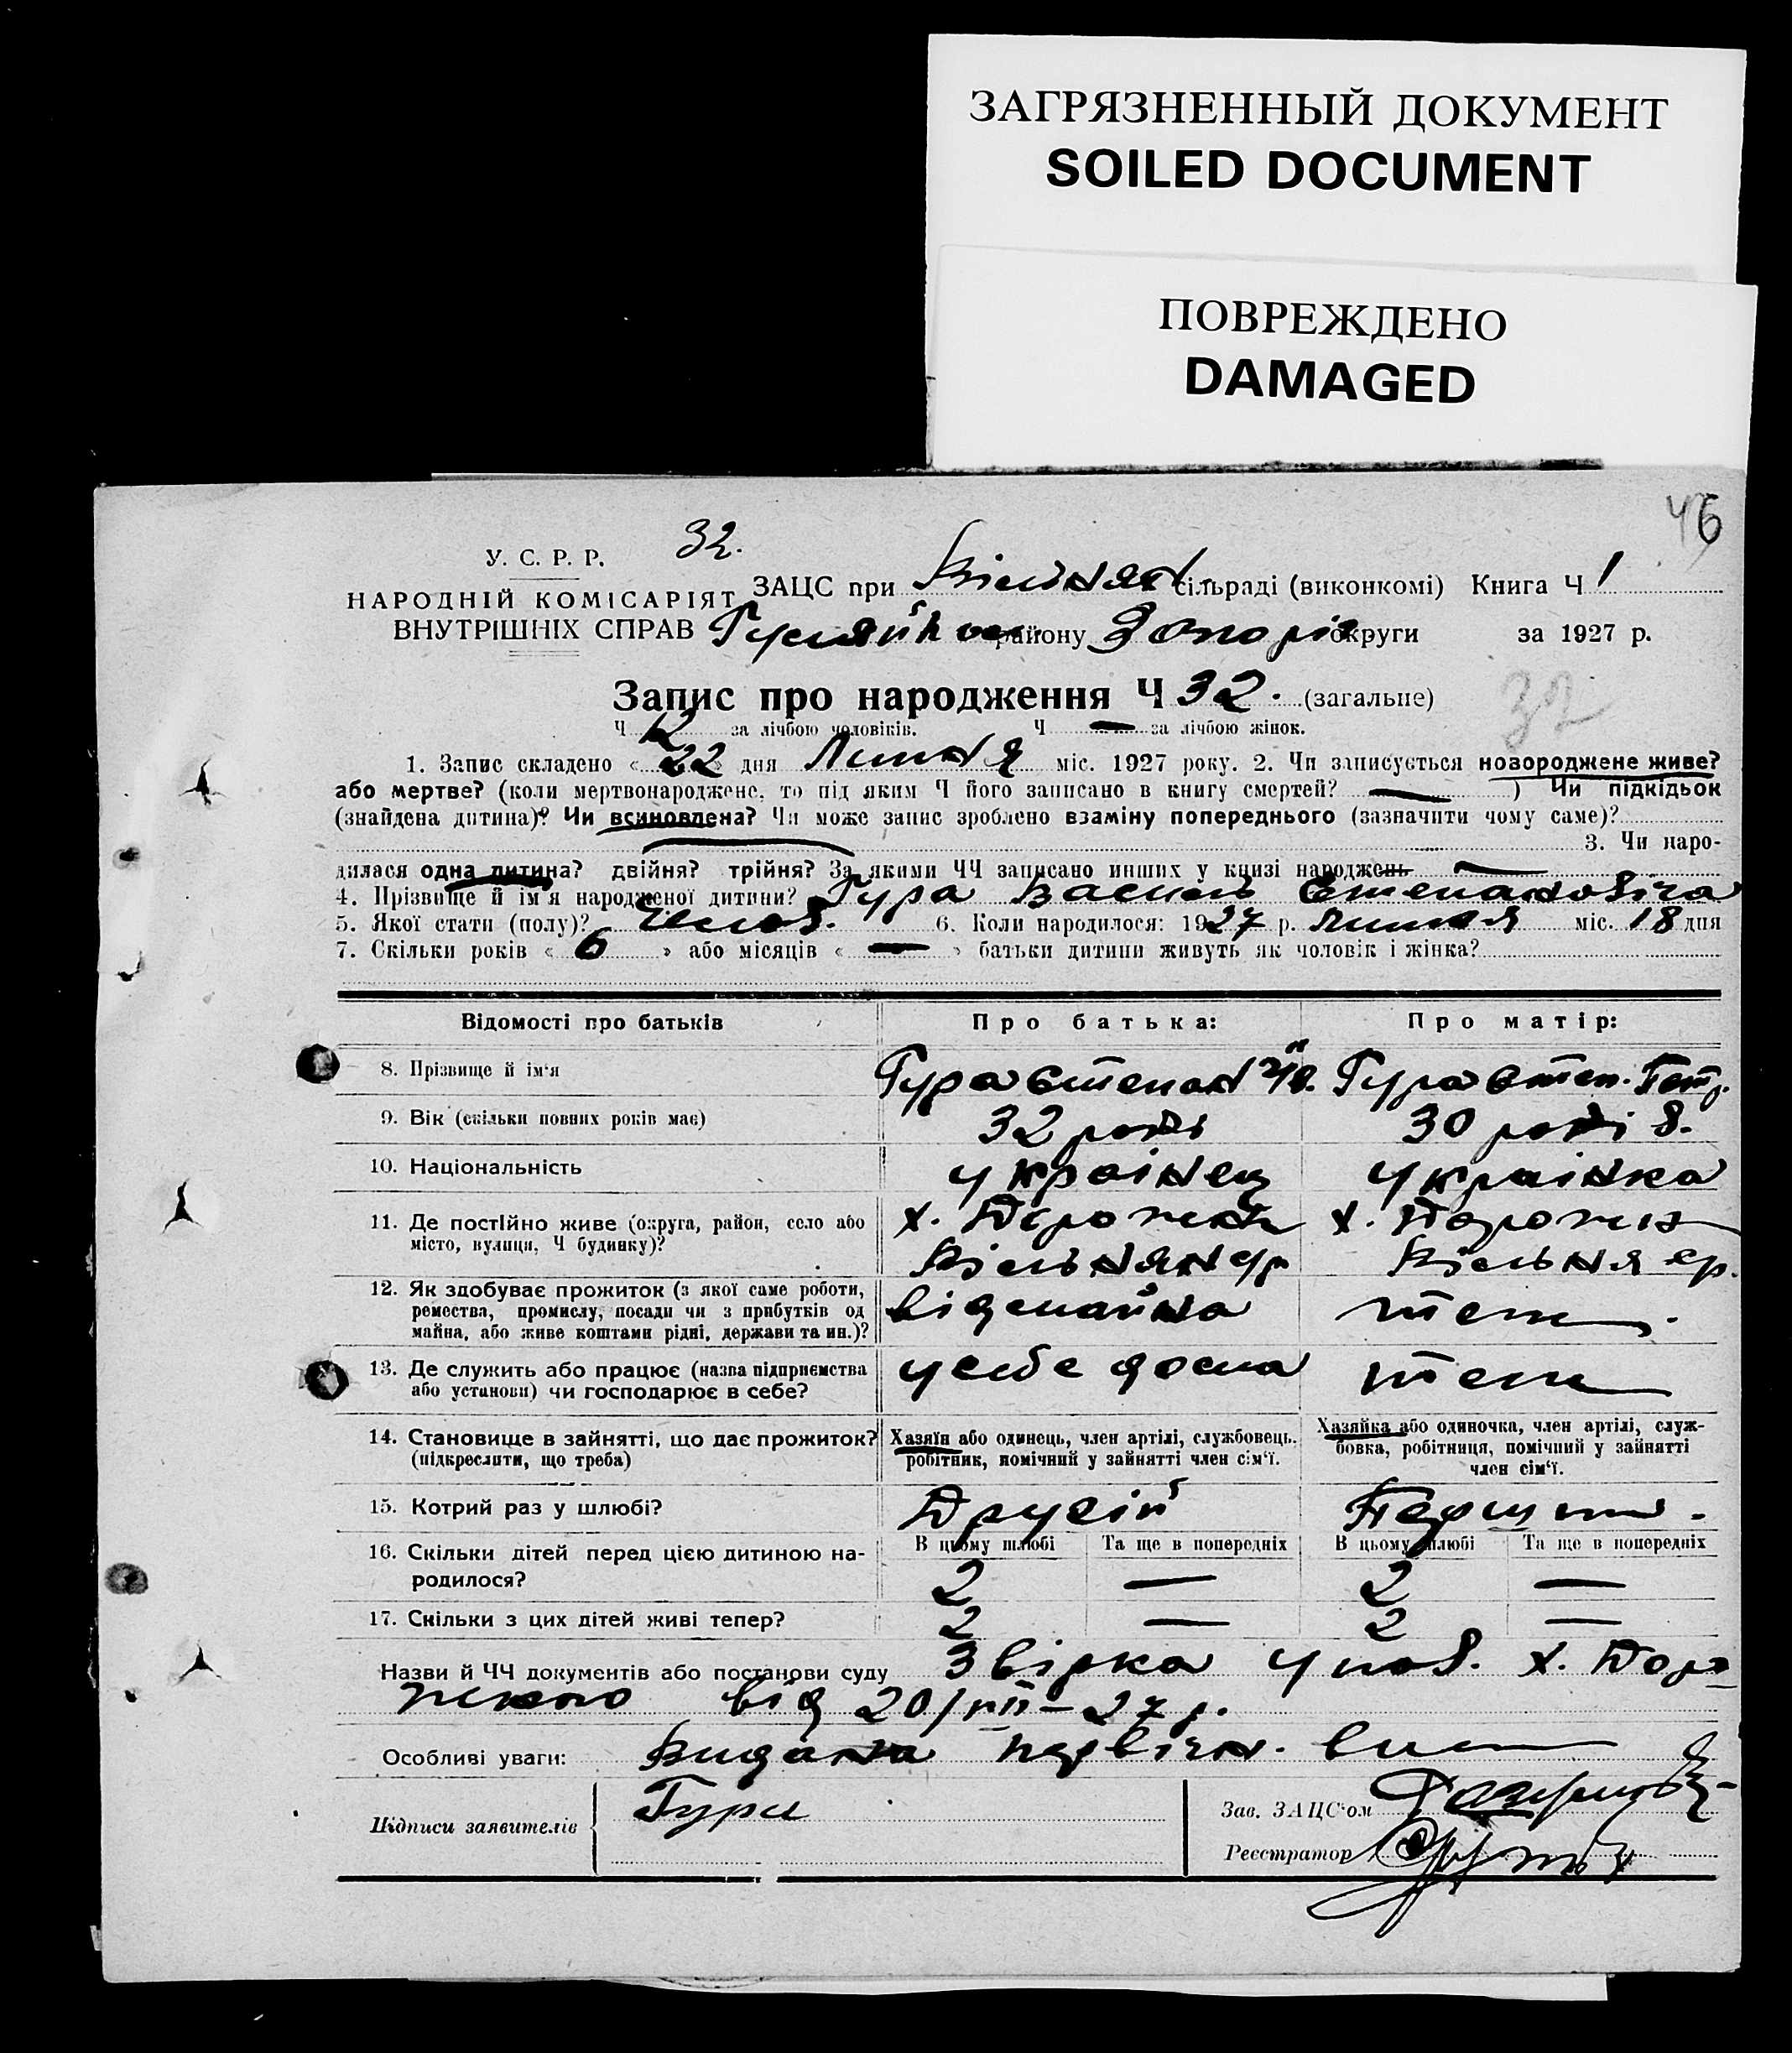 ЗАГРЯЗНЕННЫЙ ДОКУМЕНТ
SOILED DOCUMENT
ПОВРЕЖДЕНО
DAMAGED
46
32.
У. С. Р. Р.
НАРОДНІЙ КОМІСАРІЯТ
ВНУТРІШНІХ СПРАВ
ЗАЦС при Вільнян сільраді (виконкомі) Книга Ч 1
району Запоріз округи за 1927 р.
Запис про народження Ч 32. (загальне)
32
Ч 12 за лічбою чоловіків. Ч — за лічбою жінок.
1. Запис складено « 22 » дня Липня міс. 1927 року. 2. Чи записується новороджене живе?
або мертве? (коли мертвонароджене, то під яким Ч його записано в книгу смертей? — ) Чи підкідьок
(знайдена дитина)? Чи всиновлена? Чи може запис зроблено взаміну попереднього (зазначити чому саме)?
3. Чи наро-
дилася одна дитина? двійня? трійня? За якими ЧЧ записано инших у книзі народжень —
4. Прізвище й ім'я народженої дитини? Гура Василь Степановіча
5. Якої стати (полу)? Чолов. 6. Коли народилося: 1927 р. Липня міс. 18 дня
7. Скільки років « 6 » або місяців « — » батьки дитини живуть як чоловік і жінка?
Відомості про батьків
Про батька:
Про матір:
8. Прізвище й ім'я
Гура Степан
Гура Петр.
9. Вік (скільки повних років має)
32 роки
30 років.
10. Національність
українец
українка
11. Де постійно живе (округа, район, село або
місто, вулиця, Ч будинку)?
х.
Вільнян ср
х.
Вільня ср.
12. Як здобуває прожиток (з якої саме роботи,
ремества, промислу, посади чи з прибутків од
майна, або живе коштами рідні, держави та ин.)?
від майна
теж.
13. Де служить або працює (назва підприємства
або установи) чи господарює в себе?
у себе дома
теж
14. Становище в зайнятті, що дає прожиток?
(підкреслити, що треба)
Хазяїн або одинець, член артілі, службовець,
робітник, помічний у зайнятті член сім'ї.
Хазяйка або одиночка, член артілі, служ-
бовка, робітниця, помічний у зайнятті
член сім'ї.
15. Котрий раз у шлюбі?
Другій
Першій.
16. Скільки дітей перед цією дитиною на-
родилося?
В цьому шлюбі Та ще в попередніх
В цьому шлюбі Та ще в попередніх
2 —
2 —
17. Скільки з цих дітей живі тепер?
2 —
2 —
Назви й ЧЧ документів або постанови суду Звірка упов. х. Доро-
від 20/VII–27 р.
Особливі уваги: Видана первічн.
Підписи заявителів
Гура
Зав. ЗАЦС'ом
Реєстратор